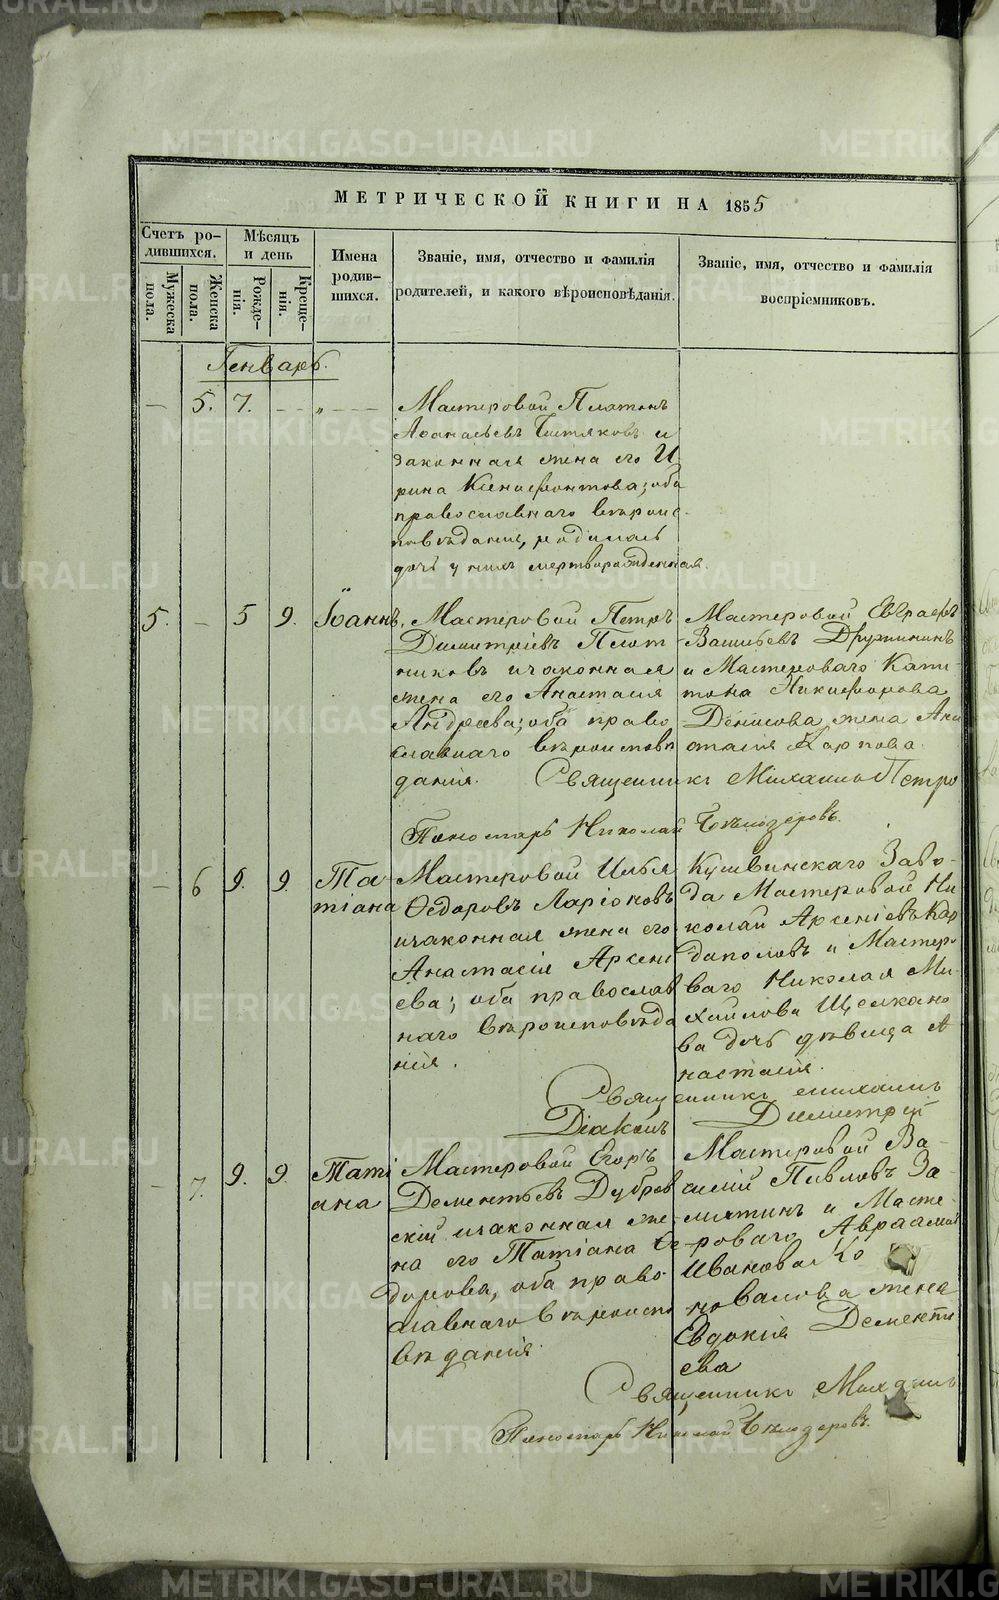 METRIKI.GASO-URAL.RU
МЕТРИЧЕСКОЙ КНИГИ НА 1855
Счетъ ро-
дившихся.
Мужеска
пола.
Женска
пола.
Мѣсяцъ
и день
Рожде-
нія.
Креще-
нія.
Имена
родив-
шихся.
Званіе, имя, отчество и фамилія
родителей, и какого вѣроисповѣданія.
Званіе, имя, отчество и фамилія
воспріемниковъ.
Генварь.
— 5. 7. — — „ —
Мастеровой Платонъ
Афанасьевъ Чистяковъ и
законная жена его И
рина Ксенофонтова; оба
православнаго вѣроис-
повѣданія, родилась
дочь у нихъ мертворожденная.
5. — 5 9. Іоаннъ.
Мастеровой Петръ
Димитріевъ Плот
никовъ и законная
жена его Анастасія
Андреева; оба право
славнаго вѣроисповѣ
данія.
Мастеровой Евграфъ
Васильевъ Дружининъ
и Мастероваго Капи-
тона Никифорова
Денисова жена Ана
стасія Карпова.
Священникъ Михаилъ Петро
Пономарь Николай Бѣлозеровъ.
— 6 9. 9. Та
тіана
Мастеровой Илья
Ѳедоровъ Ларіоновъ
и законная жена его
Анастасія Арсені
ева; оба православ
наго вѣроисповѣда
нія.
Кушвинскаго Заво-
да Мастеровой Ни
колай Арсеніевъ Кар
даполовъ и Мастеро
ваго Николая Ми-
хайлова Щелкано
ва дочь дѣвица А-
настасія.
Священникъ Михаилъ
Діаконъ Димитрій
— 7. 9. 9. Таті
ана
Мастеровой Егоръ
Дементьевъ Дубров
скій и законная же-
на его Татіана Ѳе-
дорова, оба право-
славнаго вѣроиспо
вѣданія.
Мастеровой Ва-
силій Павловъ За
мятинъ и Масте-
роваго Авраама
Иванова Ко
новалова жена
Евдокія Дементь
ева
Священникъ Михаилъ
Пономарь Николай Бѣлозеровъ.